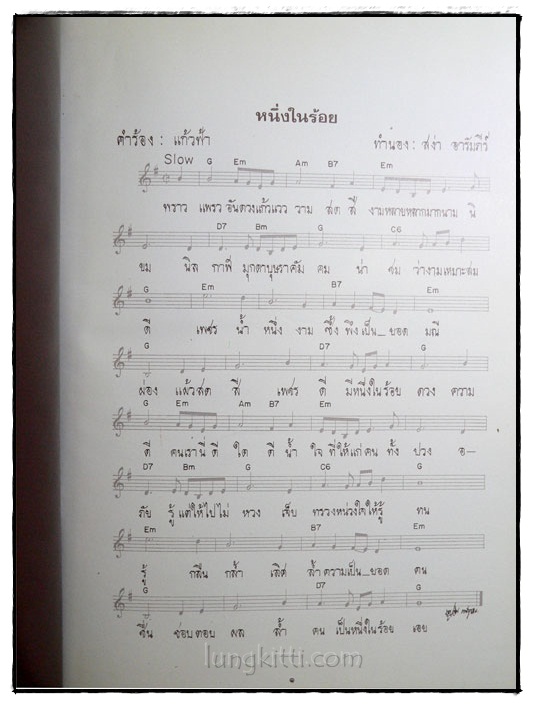 หนึ่งในร้อย
คำร้อง : แก้วฟ้า ทำนอง : สง่า อารัมภีร์
Slow G Em Am B7 Em
พราว แพรว อันดวงแก้วแวว วาม สด สี งามหลายหลากมากนาม นิ
D7 Bm G C6
ยม นิล กาฬ มุกดาบุษราคัม คม น่า ชม ว่างามเหมาะสม
G Em B7 Em
ดี เพชร น้ำ หนึ่ง งาม ซึ้ง พึง เป็น_ยอด มณี
G D7 G
ผ่อง แผ้วสด สี เพชร ดี มีหนึ่งในร้อย ดวง ความ
G Em Am B7 Em
ดี คนเรานี่ ดี ใด ดี น้ำ ใจ ที่ให้แก่คน ทั้ง ปวง อ-
D7 Bm G C6 G
ภัย รู้ แต่ให้ไปไม่ หวง เจ็บ ทรวงหน่วงใจให้รู้ ทน
Em B7 Em
รู้ กลืน กล้ำ เลิศ ล้ำ ความเป็น_ยอด คน
G D7 G
ชื่น ชอบตอบ ผล ล้ำ คน เป็นหนึ่งในร้อย เอย
lungkitti.com